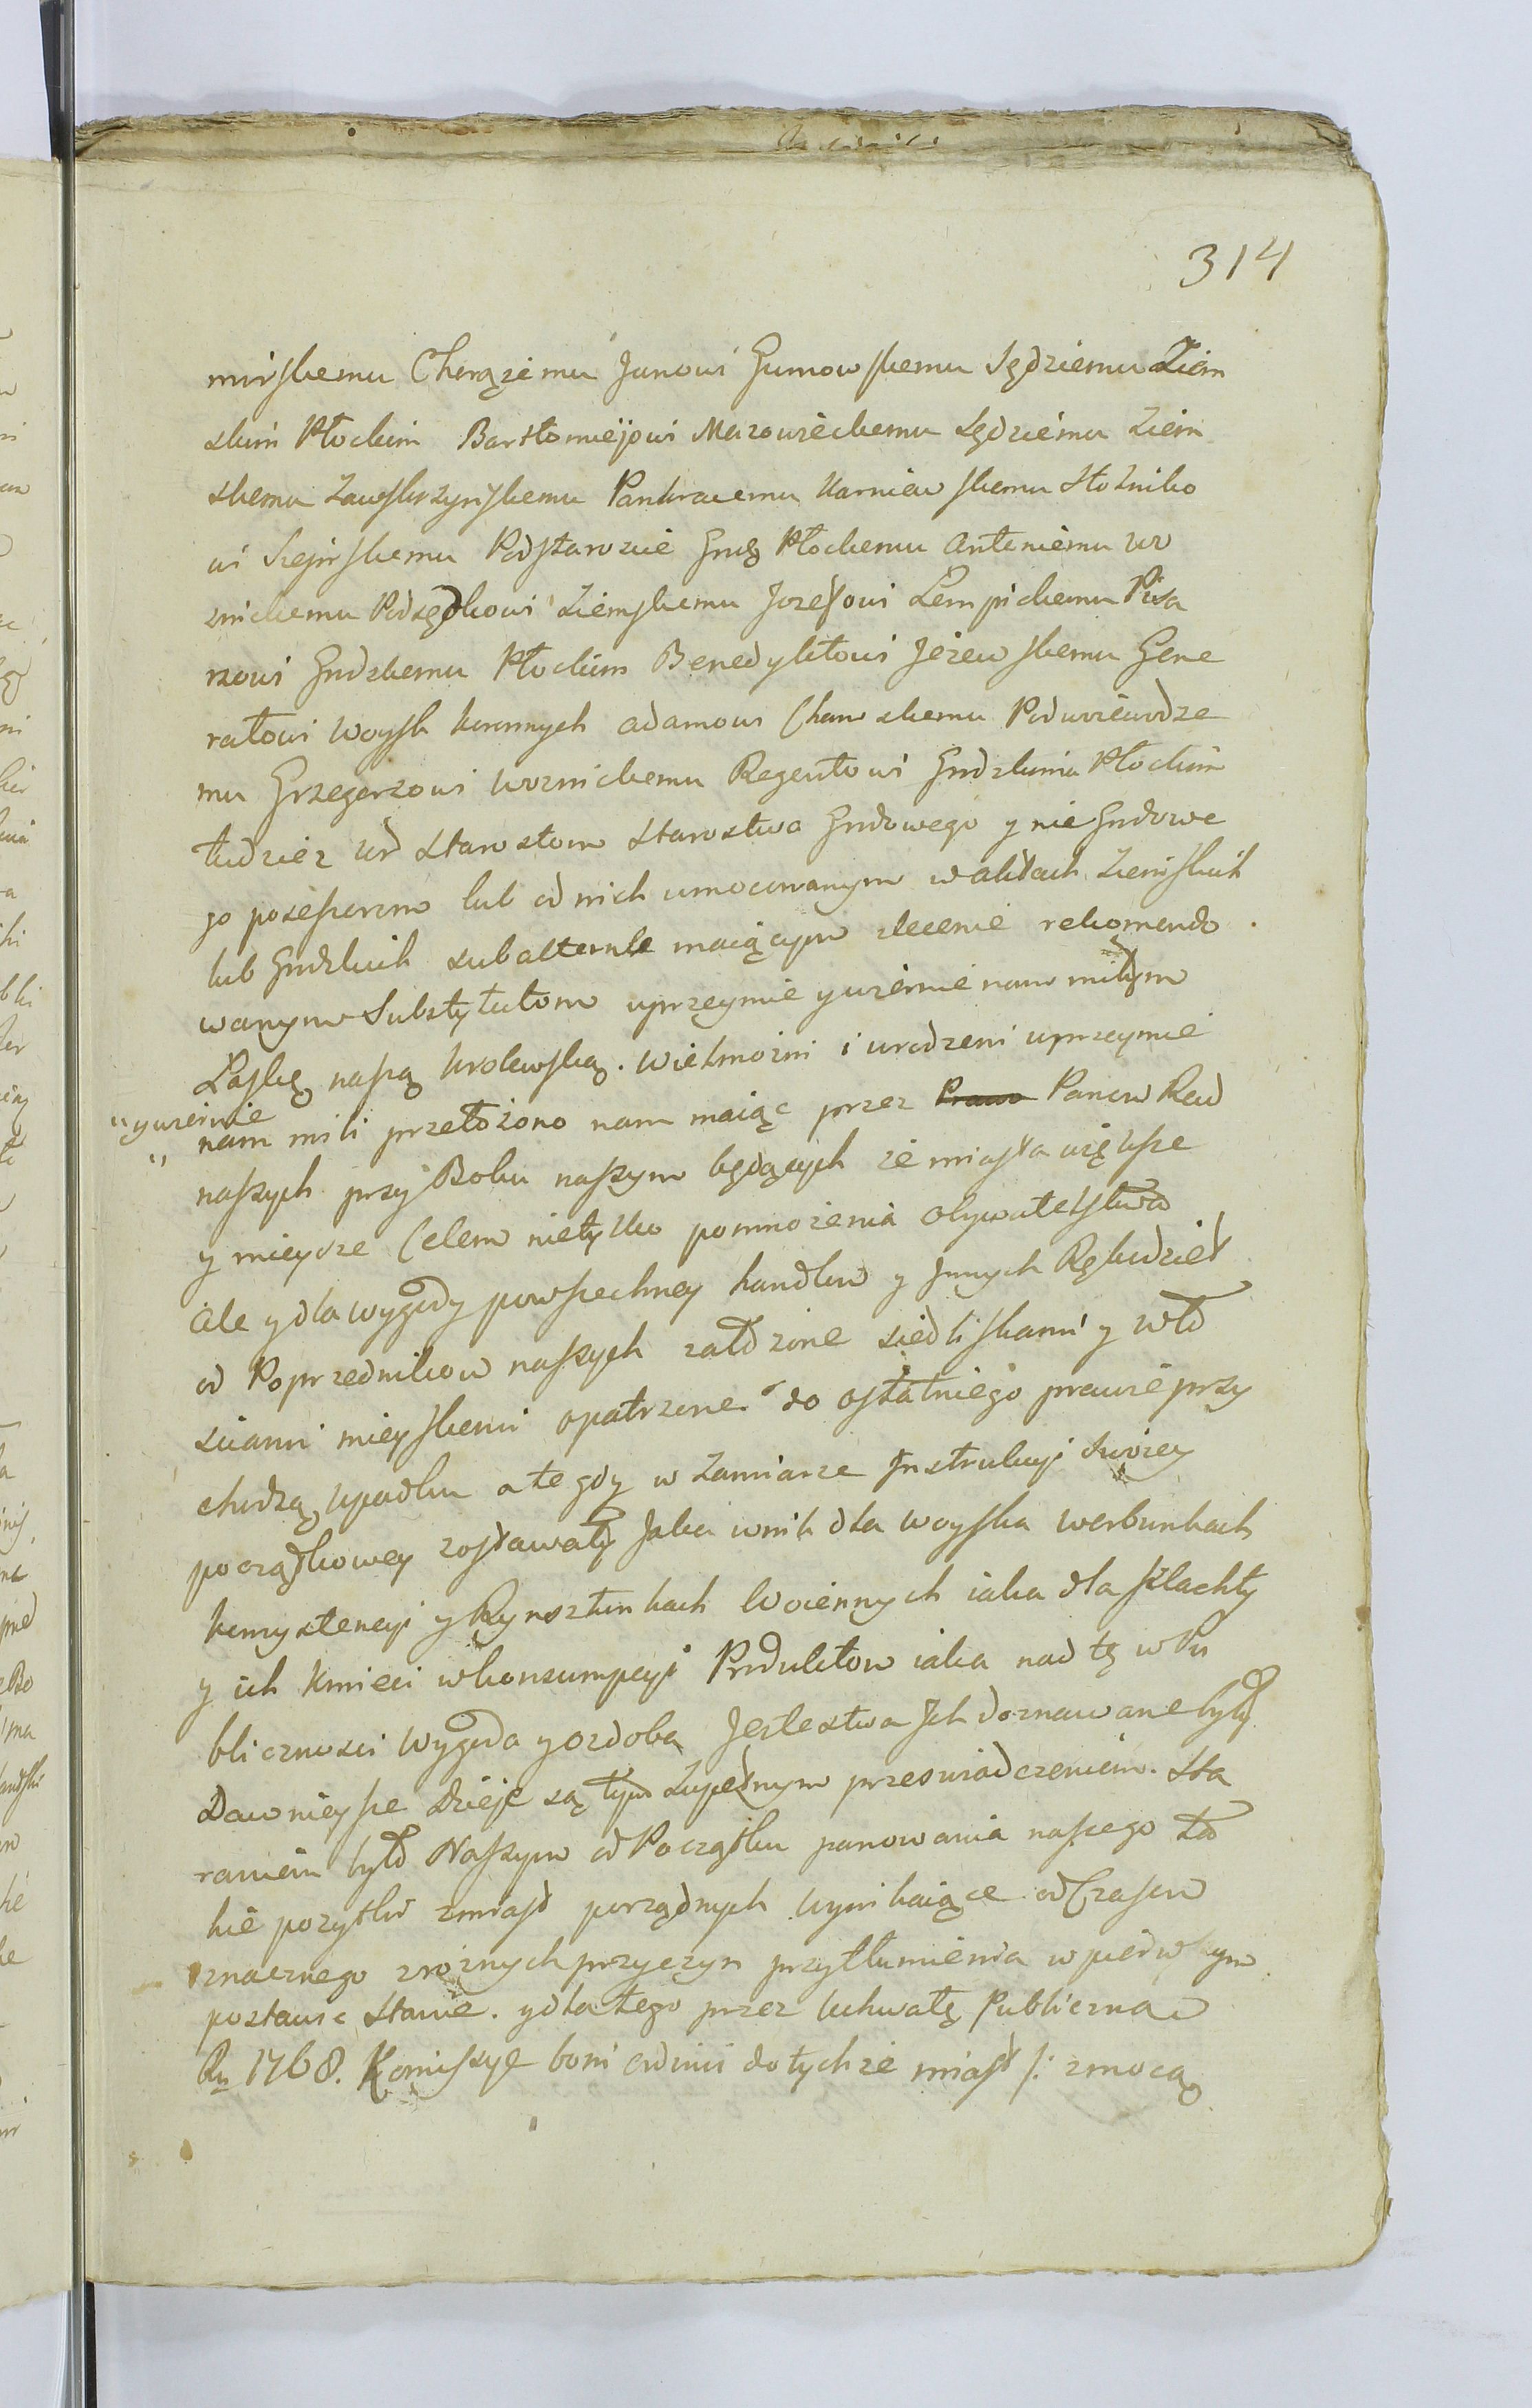 314
mirskemu Chorązemu Janowi Gumowskemu Sędziemu Ziem
skim Płockim Bartłomiejowi Mazowieckemu Sędziemu Ziem
skemu Zawskrzyńskemu Pankracemu Karniewskemu Stolniko
wi Podstarozcie Grodz Płockemu Antoniemu Wo
znickemu Podsędkowi Ziemskemu Jozefowi Lempickemu Pisa
rzowi Grodzkemu Płockim Benedyktowi Jeżewskemu Gene
rałowi Woysk koronnych adamowi Chawskemu Podwoiewodze
mu Grzegorzowi Woznickemu Regentowi Grodzkimu Płockim
tudziez Ur Starostom Starostwa Grodowego y nie Grodowe
go posessorom lub od nich umocowanym w aktach Ziemskich
lub Grodzkich subalternle maiącym zlecenie rekomendo
wanym Substytutom uprzeymie y wiernie nam miłym
Łaskę naszą krolewską. Wielmożni i urodzeni uprzeymie
"y wiernie
" nam mili przełożono nam maiąc przez Prawo Panow Rad
naszych przy Boku naszym będących że miasta większe
y mieysze Celem nietylko pomnożenia obywatelstwa
ale y dla wygody powszechney handlow y Innych Rękodzieł
od Poprzednikow naszych załozone siedliskami y wło
sciami mieyskemi opatrzone do ostatniego prawie przy
chodzą upadku a te gdy w Zamiarze Instrukcyi Swoiey
początkowey zostawały Jaka wnich dla woyska werbunkach
konsystencyi y Rynsztunkach Woiennych iaka dla szlachty
y ich kmieci w konsumpcyi Produktow iaka nad tę w Pu
bliczności wygoda y ozdoba Jestestwa Ich doznawane były
Dawnieysze Dzieje są tym Zupełnym przeswiadczeniem. Sta
raniem było Naszym od Początku panowania naszego ta
kie pozytki z miast porządnych wynikaiące od Czasow
znacznego z rożnych przyczyn przytłumienia w pierwszym
postawic Stanie. y dla tego przez Uchwałę Publiczną
Ru 1768. Komissye boni ordinis do tychże miast /: z mocą